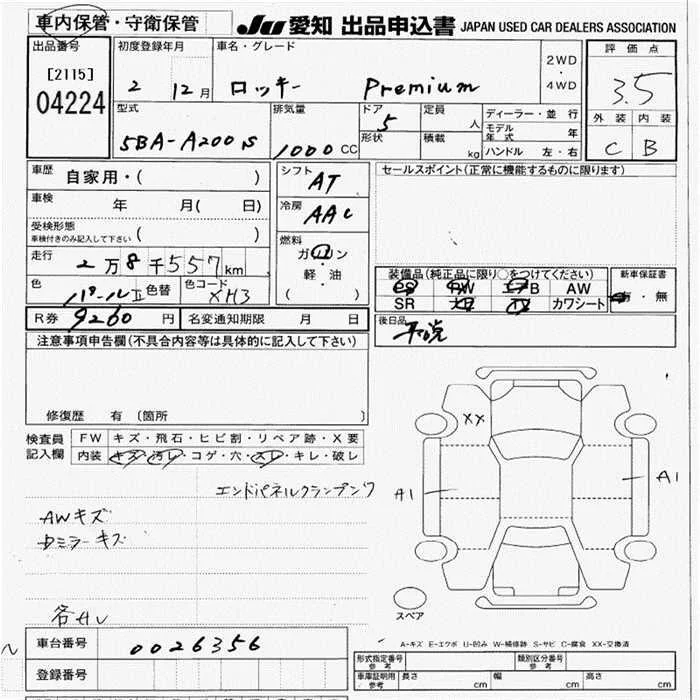 車内保管・守衛保管
JU 愛知 出品申込書 JAPAN USED CAR DEALERS ASSOCIATION
出品番号
[2115]
04224
初度登録年月
2 12月
車名・グレード
ロッキー Premium
2WD
・
4WD
評価点
3.5
外装 内装
C B
型式
5BA-A200S
排気量
1000 CC
ドア
5
形状
定員
人
積載
kg
ディーラー・並行
モデル年式 年
ハンドル 左・右
車歴 自家用・( )
車検 年 月( 日)
受検形態
車検付きのみ記入して下さい ( )
走行 2万8千557km
色 パール II 色替 色コード XH3
R券 9260 円 名変通知期限 月 日
シフト AT
冷房 AAC
燃料
ガソリン
・
軽・油
( )
セールスポイント(正常に機能するものに限ります)
装備品(純正品に限り○をつけてください)
PS PW エアB AW
SR TV カワシート
新車保証書
有・無
後日品
注意事項申告欄(不具合内容等は具体的に記入して下さい)
修復歴 有 〔箇所 〕
検査員記入欄
FW キズ・飛石・ヒビ割・リペア跡・X要
内装 キズ・汚レ・コゲ・穴・スレ・キレ・破レ
エンドパネルクランプキズ
AWキズ
Dミラーキズ
各AU
XX
A1
A1
スペア
A-キズ E-エクボ U-凹み W-補修跡 S-サビ C-腐食 XX-交換済
車台番号 0026356
登録番号
形式指定番号 参考
類別区分番号 参考
車庫証明用 参考 長さ cm 幅 cm 高さ cm